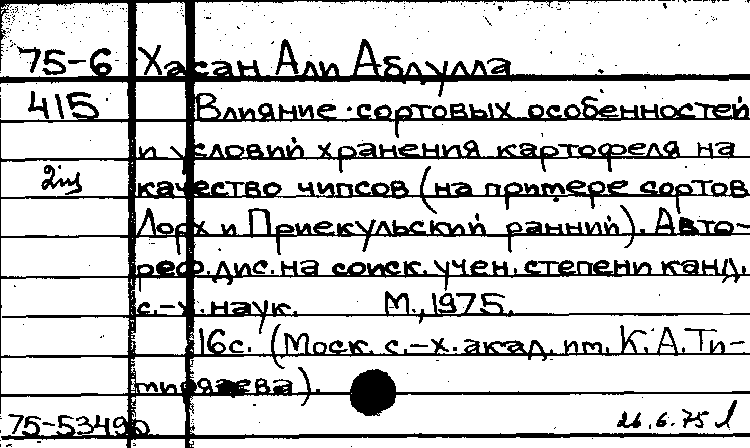 75-6 Хасан Али Абдулла
415 Влияние сортовых особенностей
и условий хранения картофеля на
2из качество чипсов (на примере сортов
Лорх и Приекульский ранний). Авто-
реф. дис. на соиск. учен. степени канд.
с.-х. наук. М., 1975.
16с. (Моск. с.-х. акад. им. К. А. Ти-
мирязева).
75-53490 26.6.75